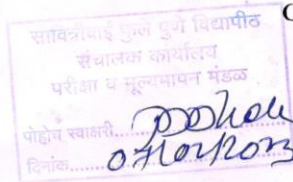 C
सावित्रीबाई फुले पुणे विद्यापीठ
संचालक कार्यालय
परीक्षा व मूल्यमापन मंडळ
पोहोच स्वाक्षरी
दिनांक